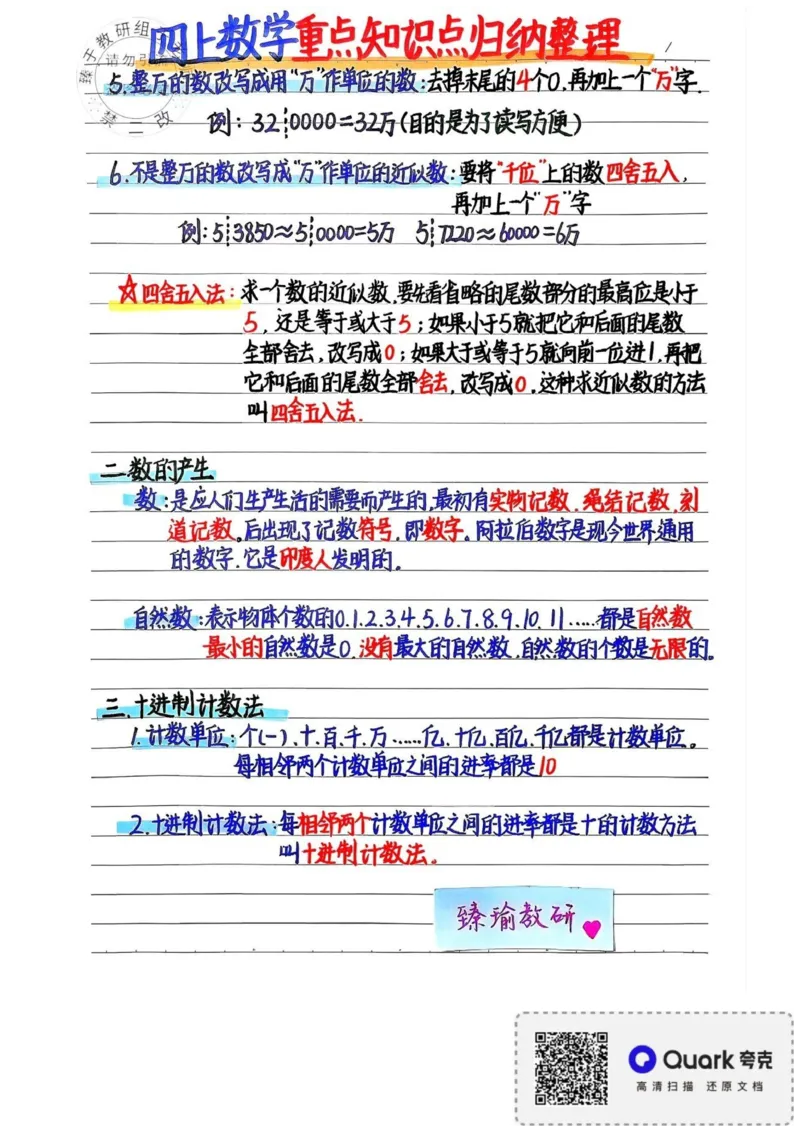 四上数学重点知识点归纳整理
5.整万的数改写成用"万"作单位的数:去掉末尾的4个0,再加上一个"万"字.
例:32┊0000=32万(目的是为了读写方便)
6.不是整万的数改写成"万"作单位的近似数:要将"千位"上的数四舍五入,
再加上一个"万"字
例:5┊3850≈5┊0000=5万 5┊7220≈60000=6万
☆四舍五入法:求一个数的近似数,要先看省略的尾数部分的最高位是小于
5,还是等于或大于5;如果小于5就把它和后面的尾数
全部舍去,改写成0;如果大于或等于5就向前一位进1,再把
它和后面的尾数全部舍去,改写成0.这种求近似数的方法
叫四舍五入法.
二.数的产生
数:是应人们生产生活的需要而产生的,最初有实物记数、绳结记数、刻
道记数。后出现了记数符号,即数字。阿拉伯数字是现今世界通用
的数字.它是印度人发明的。
自然数:表示物体个数的0.1.2.3.4.5.6.7.8.9.10.11……都是自然数
最小的自然数是0.没有最大的自然数,自然数的个数是无限的。
三.十进制计数法
1.计数单位:个(一)、十、百、千、万……亿、十亿、百亿、千亿都是计数单位。
每相邻两个计数单位之间的进率都是10
2.十进制计数法:每相邻两个计数单位之间的进率都是十的计数方法
叫十进制计数法。
臻瑜教研
Quark夸克
高清扫描 还原文档